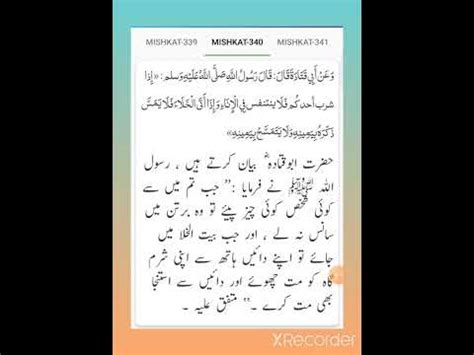 MISHKAT-339 MISHKAT-340 MISHKAT-341
وَعَنْ أَبِي قَتَادَةَ قَالَ: قَالَ رَسُولُ اللَّهِ صَلَّى اللَّهُ عَلَيْهِ وَسلم: «إِذا
شرب أحدكُم فَلَا يتنفس فِي الْإِنَاء وَإِذَا أَتَى الْخَلَاءَ فَلَا يَمَسَّ
ذَكَرَهُ بِيَمِينِهِ وَلَا يَتَمَسَّحْ بِيَمِينِهِ»
حضرت ابوقتادہ ؓ بیان کرتے ہیں ، رسول
اللہ ﷺ نے فرمایا :’’ جب تم میں سے
کوئی شخص کوئی چیز پیئے تو وہ برتن میں
سانس نہ لے ، اور جب بیت الخلا میں
جائے تو اپنے دائیں ہاتھ سے اپنی شرم
گاہ کو مت چھوئے اور دائیں سے استنجا
بھی مت کرے ۔‘‘ متفق علیہ ۔
XRecorder